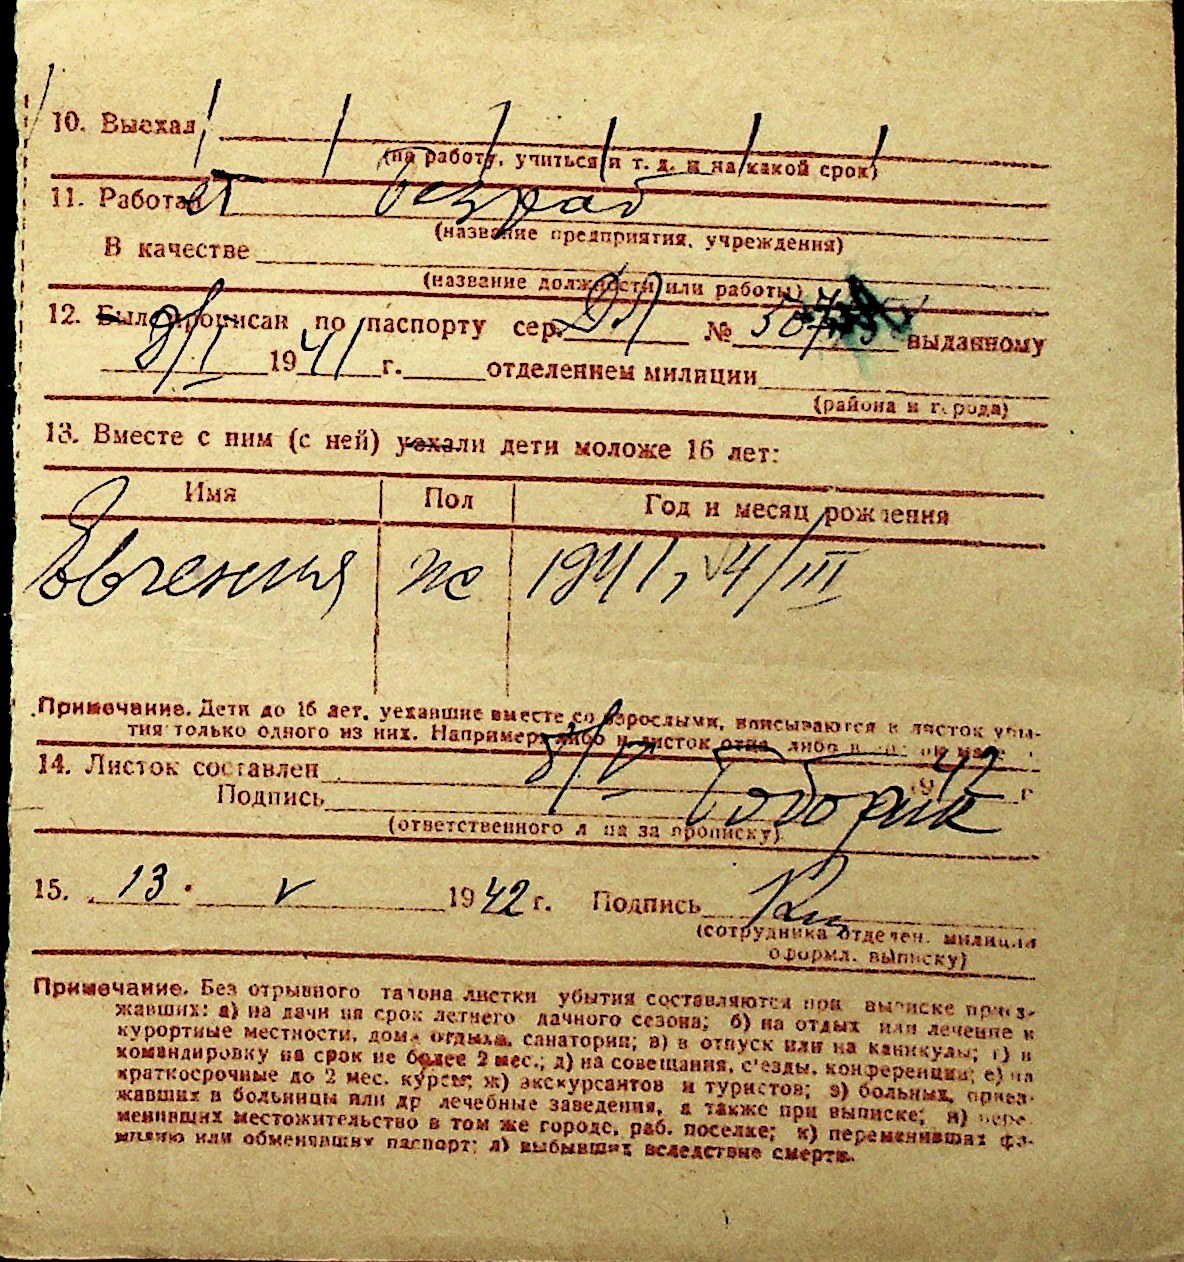 10. Выехал
(на работу, учиться и т. д. и на какой срок)
11. Работает безраб
(название предприятия, учреждения)
В качестве
(название должности или работы)
12. Был прописан по паспорту сер. № выданному
8/I 1941 г. отделением милиции
(района и города)
13. Вместе с ним (с ней) уехали дети моложе 16 лет:
Имя Пол Год и месяц рождения
Евгения ж 1941, 4/III
Примечание. Дети до 16 лет, уехавшие вместе со взрослыми, вписываются в листок убы-
тия только одного из них. Например либо в листок отца, либо в
14. Листок составлен 8/V 1942 г
Подпись
(ответственного лица за прописку)
15. 13. V 1942 г. Подпись
(сотрудника отделен. милиции
оформл. выписку)
Примечание. Без отрывного талона листки убытия составляются при выписке приез-
жавших: а) на дачи на срок летнего дачного сезона; б) на отдых или лечение в
курортные местности, дома отдыха, санатории; в) в отпуск или на каникулы; г) в
командировку на срок не более 2 мес.; д) на совещания, с'езды, конференции; е) на
краткосрочные до 2 мес. курсы; ж) экскурсантов и туристов; з) больных, приез-
жавших в больницы или др лечебные заведения, а также при выписке; и) пере-
менивших местожительство в том же городе, раб. поселке; к) переменивших фа-
милию или обменявших паспорт; л) выбывших вследствие смерти.